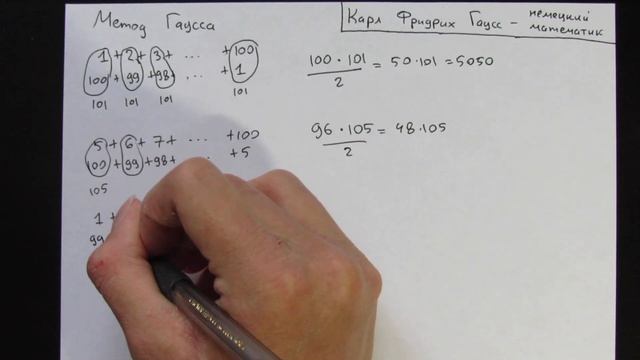 Метод Гаусса
Карл Фридрих Гаусс - немецкий математик
1 + 2 + 3 + ... + 100
100 + 99 + 98 + ... + 1
101 101 101 101
100 · 101 / 2 = 50 · 101 = 5050
5 + 6 + 7 + ... + 100
100 + 99 + 98 + ... + 5
105
96 · 105 / 2 = 48 · 105
1 +
99